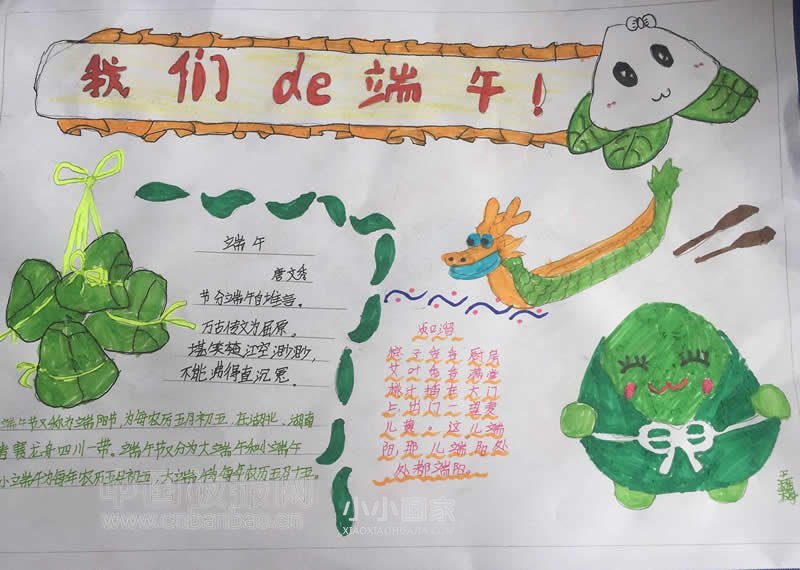 我们de端午！
端午
唐文秀
节分端午自谁言。
万古传文为屈原。
堪笑楚江空渺渺，
不能洗得直沉冤。
端午节又称为端阳节，为每农历五月初五 在湖北、湖南
赛龙舟四川一带。端午节又分为大端午和小端午
小端午为每年农历五月初五，大端午为每年农历五月十五。
知谱
粽子香香厨房
艾叶香香满堂
桃枝插在大门
上出门一望麦
儿黄。这儿端
阳，那儿端阳处
处都端阳。
中国板报网
www.cnbanbao.cn
小小画家
XIAOXIAOHUAJIA.COM